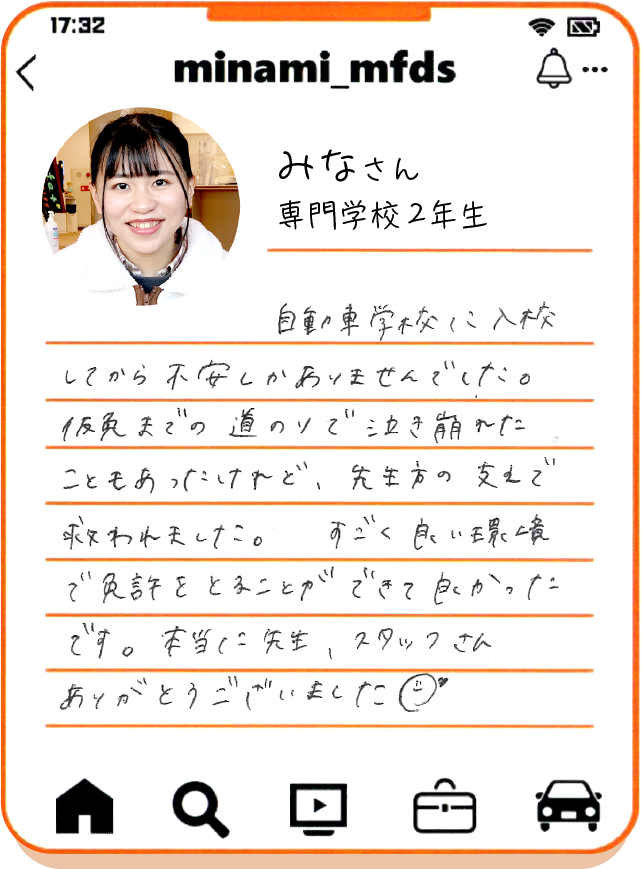 17:32
minami_mfds
みなさん
専門学校2年生
自動車学校に入校
してから不安しかありませんでした。
仮免までの道のりで泣き崩れた
こともあったけれど、先生方の支えで
救われました。 すごく良い環境
で免許をとることができて良かった
です。本当に先生、スタッフさん
ありがとうございました